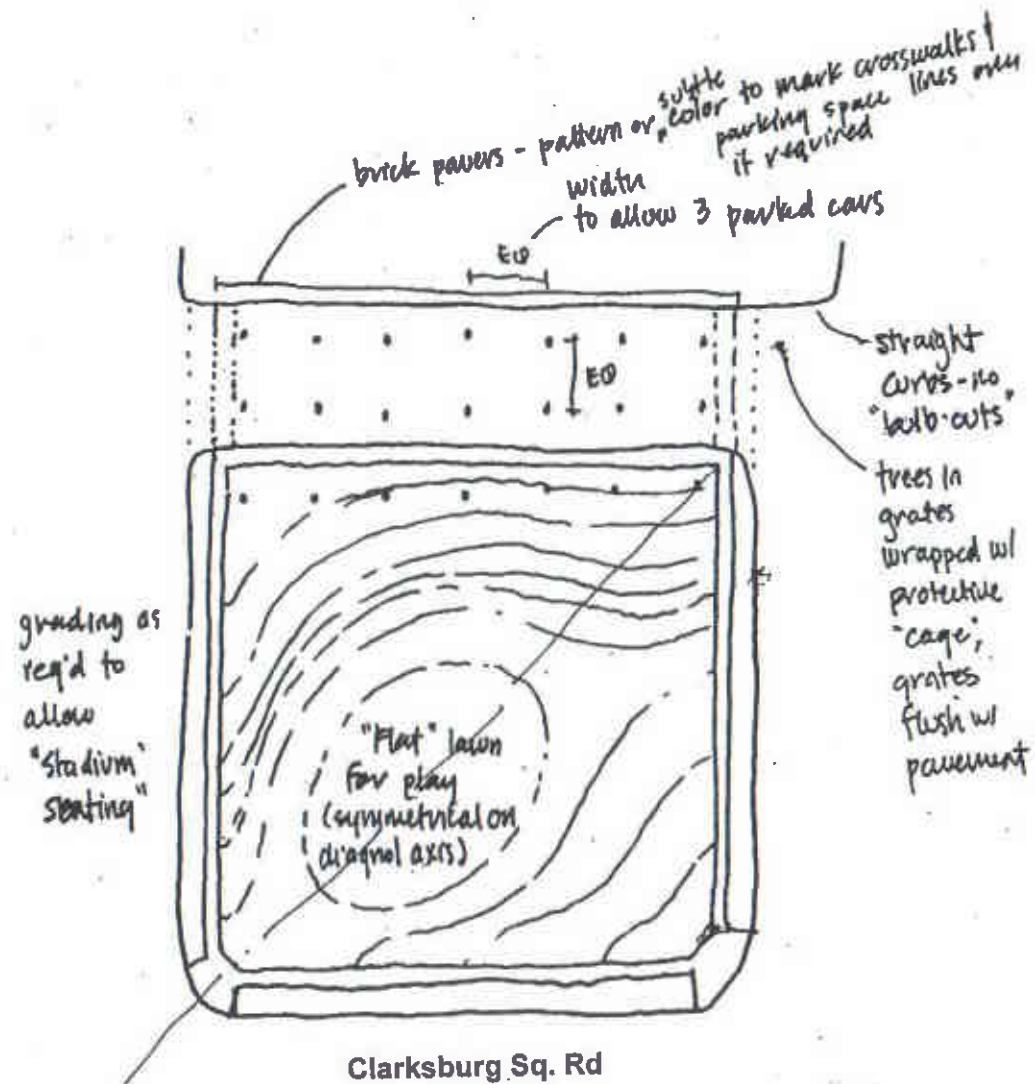 brick pavers - pattern or subtle color to mark crosswalks &
parking space lines over
if required
width
to allow 3 parked cars
EQ
EQ
straight
curbs - no
"bulb-outs"
trees in
grates
wrapped w/
protective
"cage",
grates
flush w/
pavement
grading as
req'd to
allow
"Stadium
seating"
"Flat" lawn
for play
(symmetrical on
diagnol axis)
Clarksburg Sq. Rd